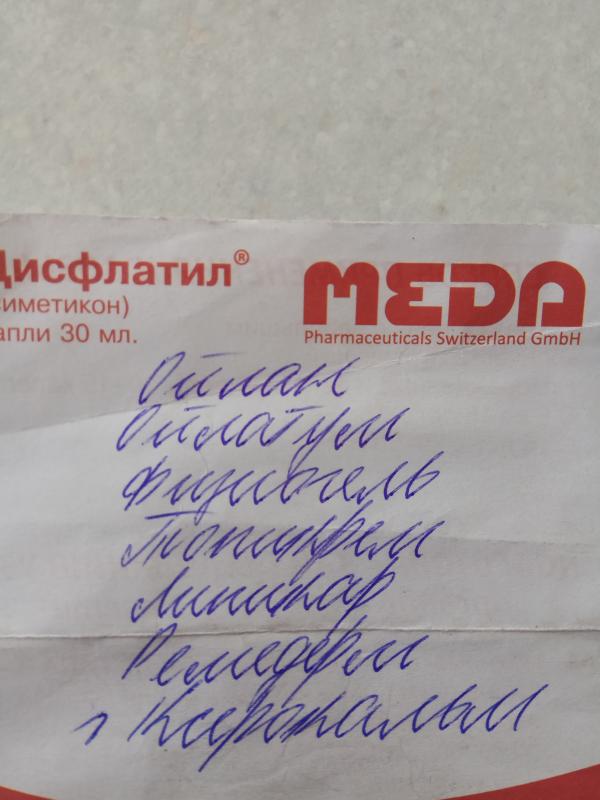 Дисфлатил®
иметикон)
апли 30 мл.
MEDA
Pharmaceuticals Switzerland GmbH
Ойлан
Ойлатум
Физиогель
Топикрем
Липикар
Ремедерм
Ксерокальм